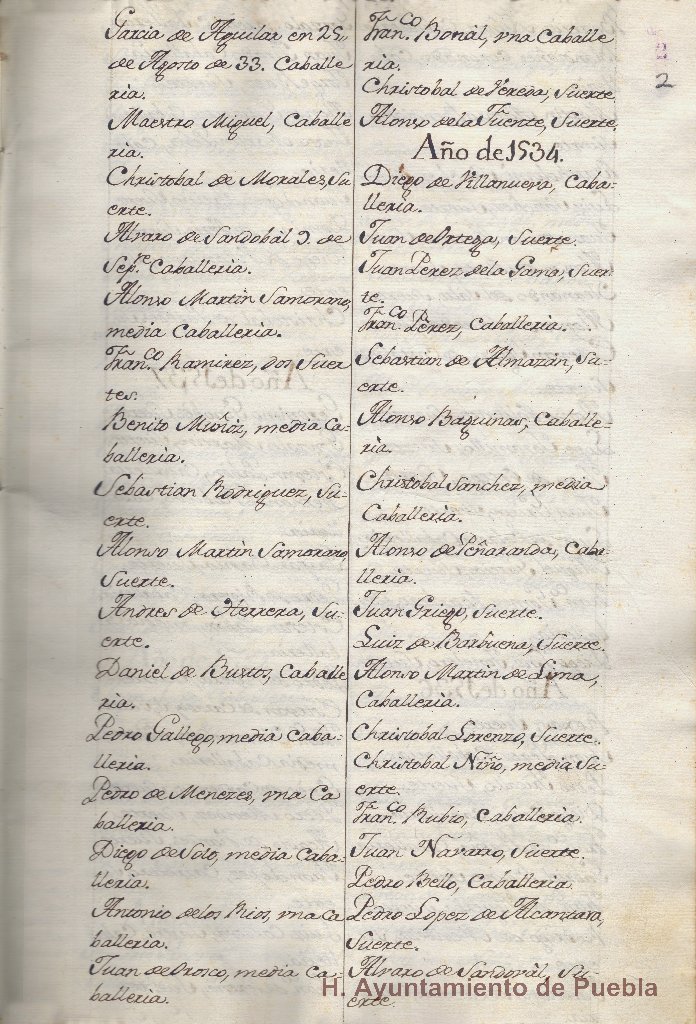 Garcia de Aguilar en 25,,
de Agosto de 33. Caballe
ria.
Maestro Miguel, Caballe
ria.
Christobal de Morales, Su
erte.
Alvaro de Sandobàl 9. de
Sep.re Caballeria.
Alonso Martin Samorano,
media Caballeria.
Fran.co Ramirez, dos Suer
tes.
Benito Muñoz, media Ca-
balleria.
Sebastian Rodriguez, Su-
erte.
Alonso Martin Samorano,
Suerte.
Andres de Herrera, Su-
erte.
Daniel de Bustos, Caballe
ria.
Pedro Gallego, media Caba-
lleria.
Pedro de Meneses, vna Ca
balleria.
Diego de Soto, media Caba-
lleria.
Antonio delos Rios, vna Ca
balleria.
Juan de Orosco, media Ca-
balleria.
Fran.co Bonàl, vna Caballe
ria.
Christobal de Pereda, Suerte.
Alonso dela Fuente, Suerte.
Año de 1534.
Diego de Villanueva, Caba-
lleria.
Juan de Ortega, Suerte.
Juan Perez dela Gama, Suer-
te.
Fran.co Perez, Caballeria.
Sebastian de Almazàn, Su-
erte.
Alonso Baquinas, Caballe-
ria.
Christobal Sanchez, media
Caballeria.
Alonso de Peñaranda, Caba-
lleria.
Juan Griego, Suerte.
Luiz de Barbuena, Suerte.
Alonso Martin de Lima,
Caballeria.
Christobal Lorenzo, Suerte.
Christobal Niño, media Su-
erte.
Fran.co Rubio, Caballeria.
Juan Navarro, Suerte.
Pedro Bello, Caballeria.
Pedro Lopez de Alcantara,
Suerte.
Alvaro de Sandovàl, Su-
erte.
2
H. Ayuntamiento de Puebla